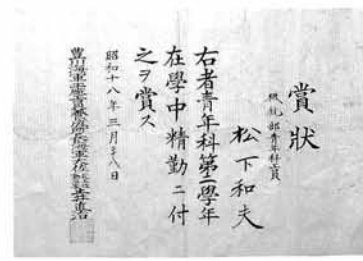 賞狀
機銃部青年科工員
松下和夫
右者青年科第一學年
在學中精勤ニ付
之ヲ賞ス
昭和十八年三月二十八日
豊川海軍工廠